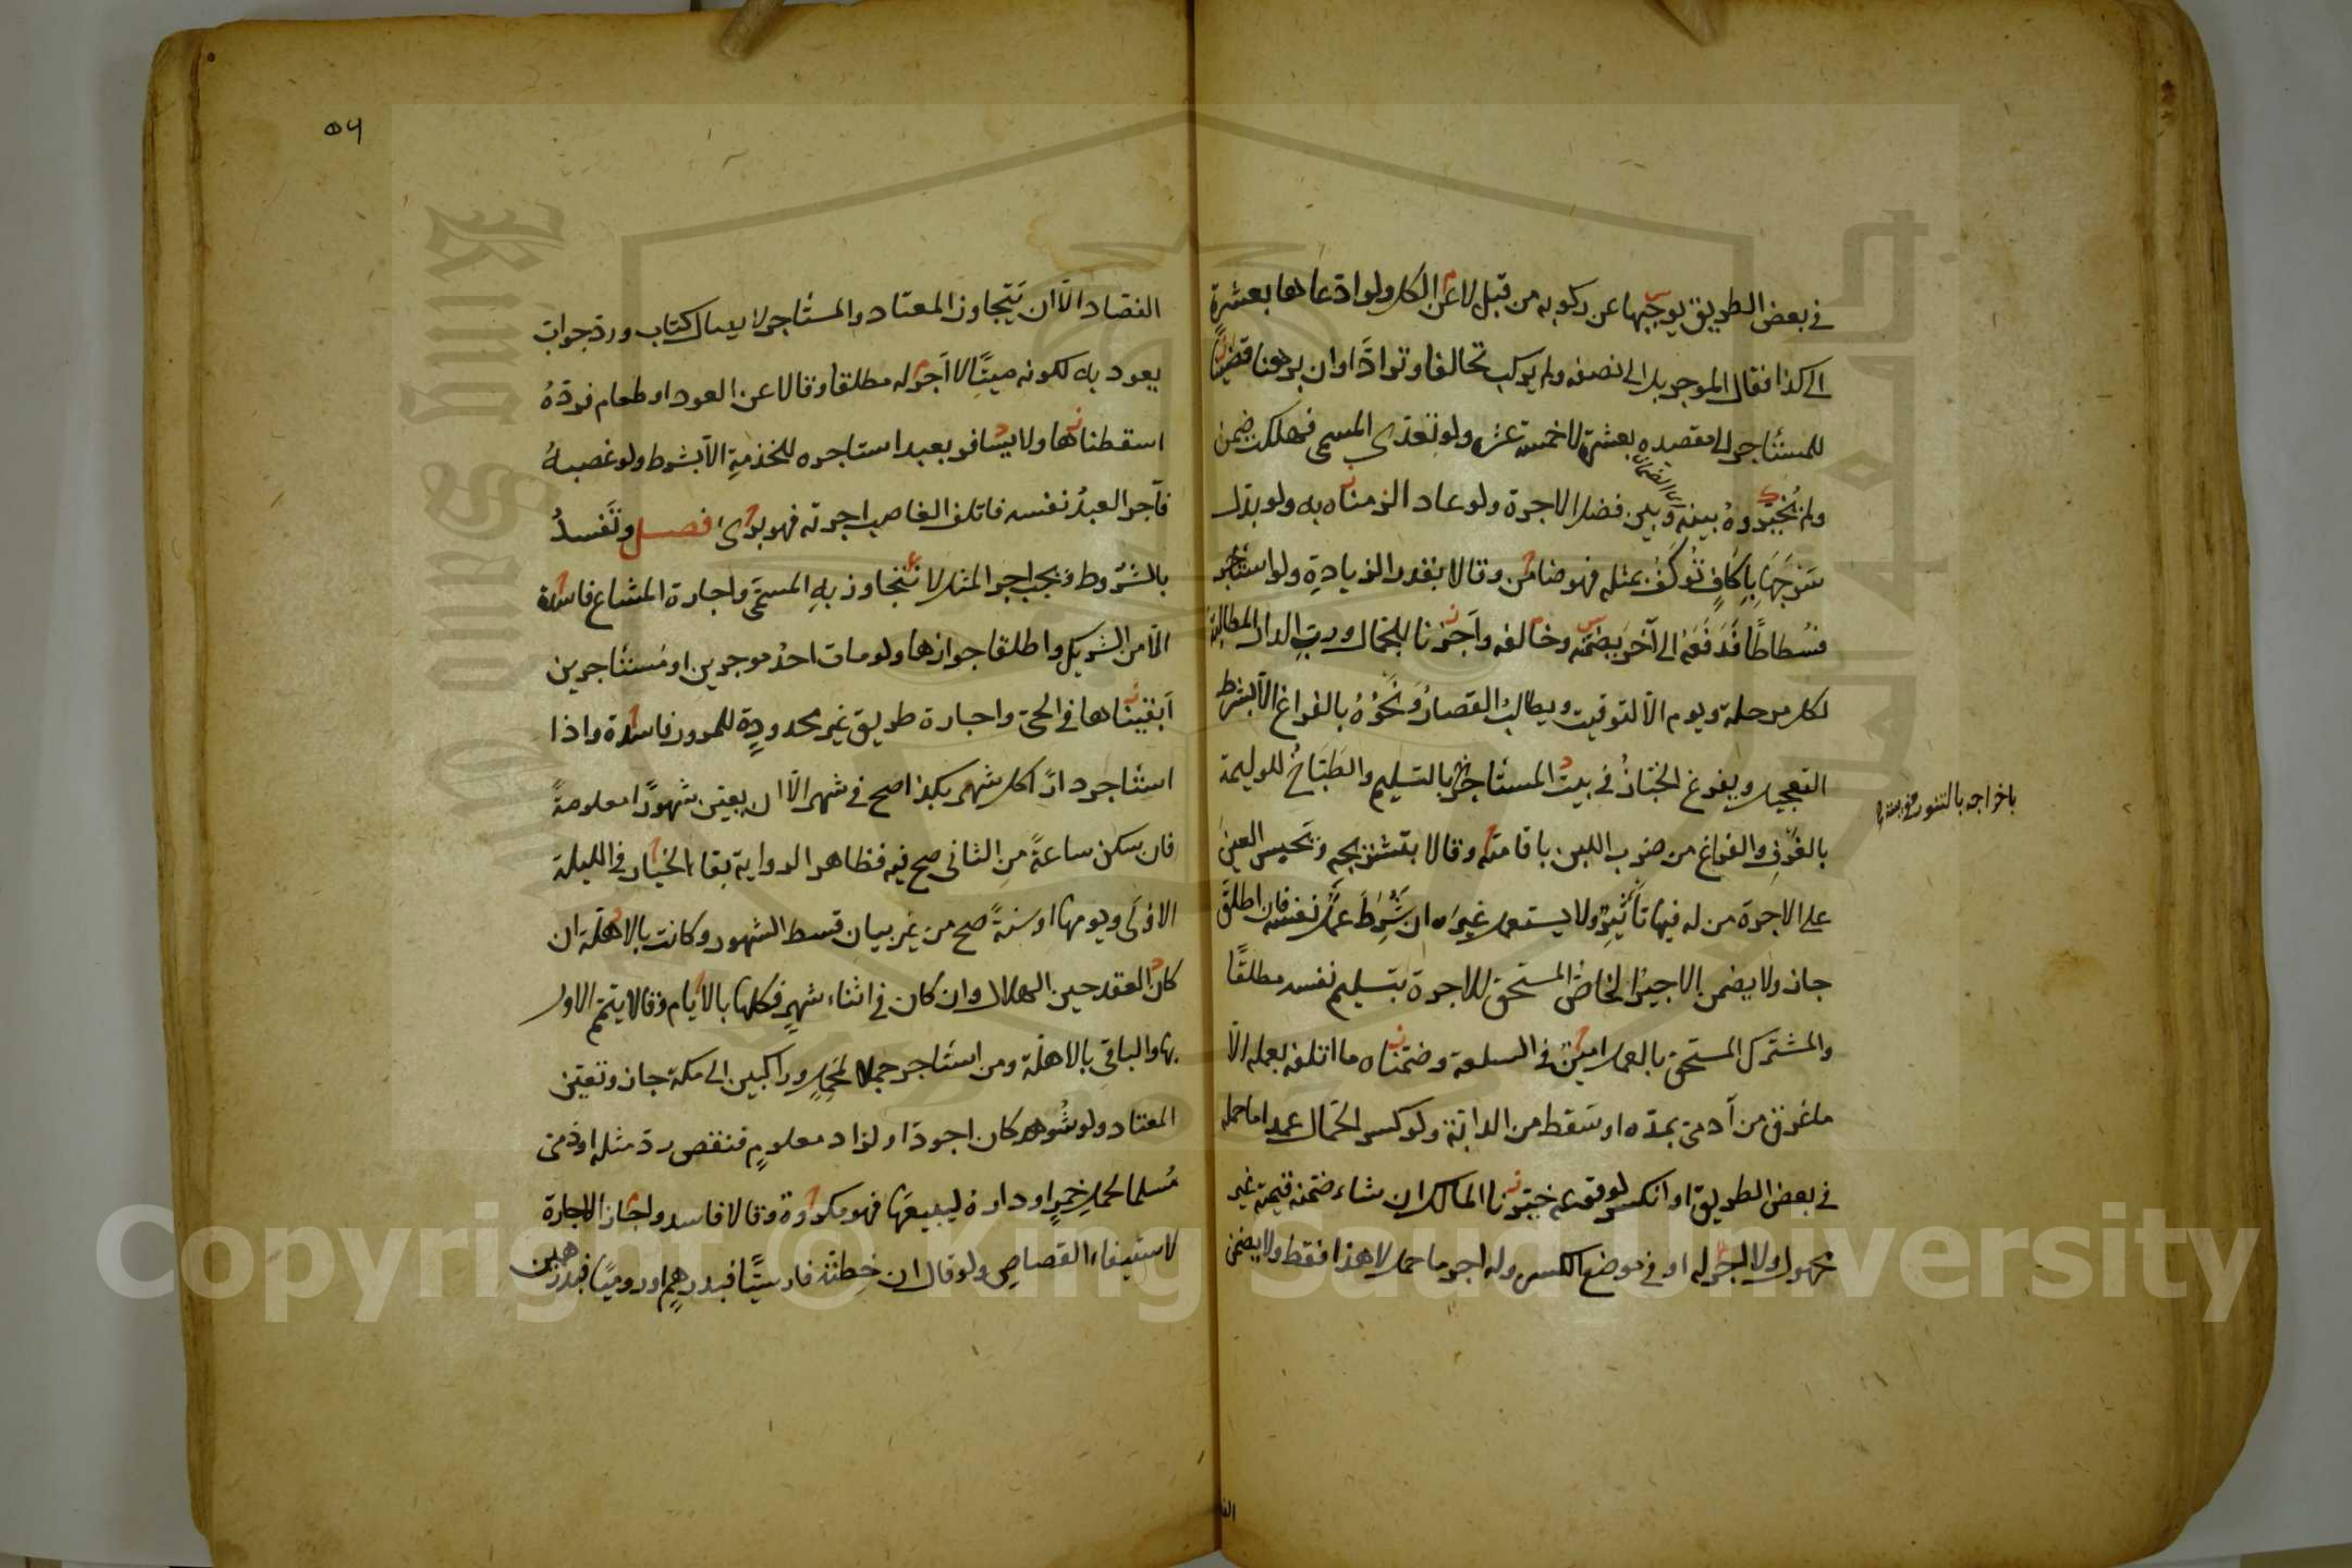 في بعض الطريق يوجبها عن ركوبه من قبل لا عن الكل ولو ادعاها بعشرة
الى كذا فقال الموجر بل الى نصفه ولم يركب تحالفا وترادّا وان برهنا قضينا
للمستأجر الى مقصده بعشرة لا خمسة عشر ولو تعدى المسمى فهلكت ضمن
ولم نُخَيِّروهُ بينه وبين فضل الاجرة ولو عاد الزمناه به ولو بدل
سَرجَهَا باِكافٍ تُوكَفُ بمثله فهو ضامن وقالا بقدر الزيادةِ ولو استأجر
فسُطاطًا فَدَفَعَه الى آخَرَ يضمّنه وخالفه واَجَزنا للجمال وربِ الدار المطالبة
لكل مرحلة ويوم الا لتوقيت ويطالبُ القصارُ وَنَحْوُهُ بالفراغ الّا بشرط
التعجيل ويفرغ الخبّازُ في بيت المستأجر بالتسليم والطَبّاخُ للوليمة
باخراجه بالتنور
بالغَرْفِ والفراغ من ضرب اللبن باقامته وقالا بتشريجه وَتَحبس العينَ
على الاجرة من له فيها تأثيرٌ ولا يستعمل غيرَه ان شُرِطَ عملُ نفسه فان اطلَقَ
جاز ولا يضمن الاجيرُ الخاصُ المستحق للاجرة بتسليم نفسه مطلقًا
والمشترك المستحق بالعمل امينٌ في السلعة وضمّناه ما اتلفه بعمله الّا
ما غرق من آدمي بمدّه او سَقط من الدابّة ولو كسر الحمال عمدا ما حمله
في بعض الطريق او انكسر لوقوعه خيّرنا المالك ان شاء ضمّنه قيمة غير
محمول ولا اجر له او في موضع الكسر وله اجر ما حمل لا هذا فقط ولا يضمن
الفصاد الّا ان يَتجاوز المعتاد والمستأجر لايصال كتاب ورد جواب
يعود به لكونه ميتًا لا اَجرَ له مطلقا وقالا عن العود او طعام فردّهُ
اسقطناها ولا يسافر بعبد استاجره للخذمةِ الّا بشرط ولو غصبهُ
فآجر العبدُ نفسه فاتلف الغاصب اجرته فهو برئ فصل وتَفسدُ
بالشروط ويجب اجر المثل لا نتجاوز به المسمّى واجارة المشاع فاسدة
الّا من الشريك واطلقا جوازها ولو مات احدُ موجرين او مستأجرين
اَبقيناها في الحيّ واجارة طريق غير محدودةٍ للمرور فاسدة واذا
استأجر دارًا كل شهر بكذا صح في شهر الّا ان يعيّن شهورًا معلومةً
فان سكن ساعةً مِن الثاني صح فيه فظاهر الرواية بقاء الخيار في الليلة
الاولَى ويومها او سنةً صح من غير بيان قسط الشهور وكانت بالاهلّة ان
كان العقد حين الهلال وان كان في اثناء شهرٍ فكلها بالايام وقالا يتمّم الاول
بها والباقي بالاهلّة ومن استأجر جملا لمحمِلٍ وراكبين الى مكة جاز وتعيّن
المعتاد ولو شُوهد كان اجود او لزاد معلومٍ فنقص ردّ مثله او ذمي
مُسلما لحمل خمرٍ او داره ليبيعَها فهو مكروه وقالا فاسد واجاز الاجارة
لاستيفاء القصاصِ ولو قال ان خِطتَه فارسيًّا فبدرهمٍ او روميًّا فبدرهمين